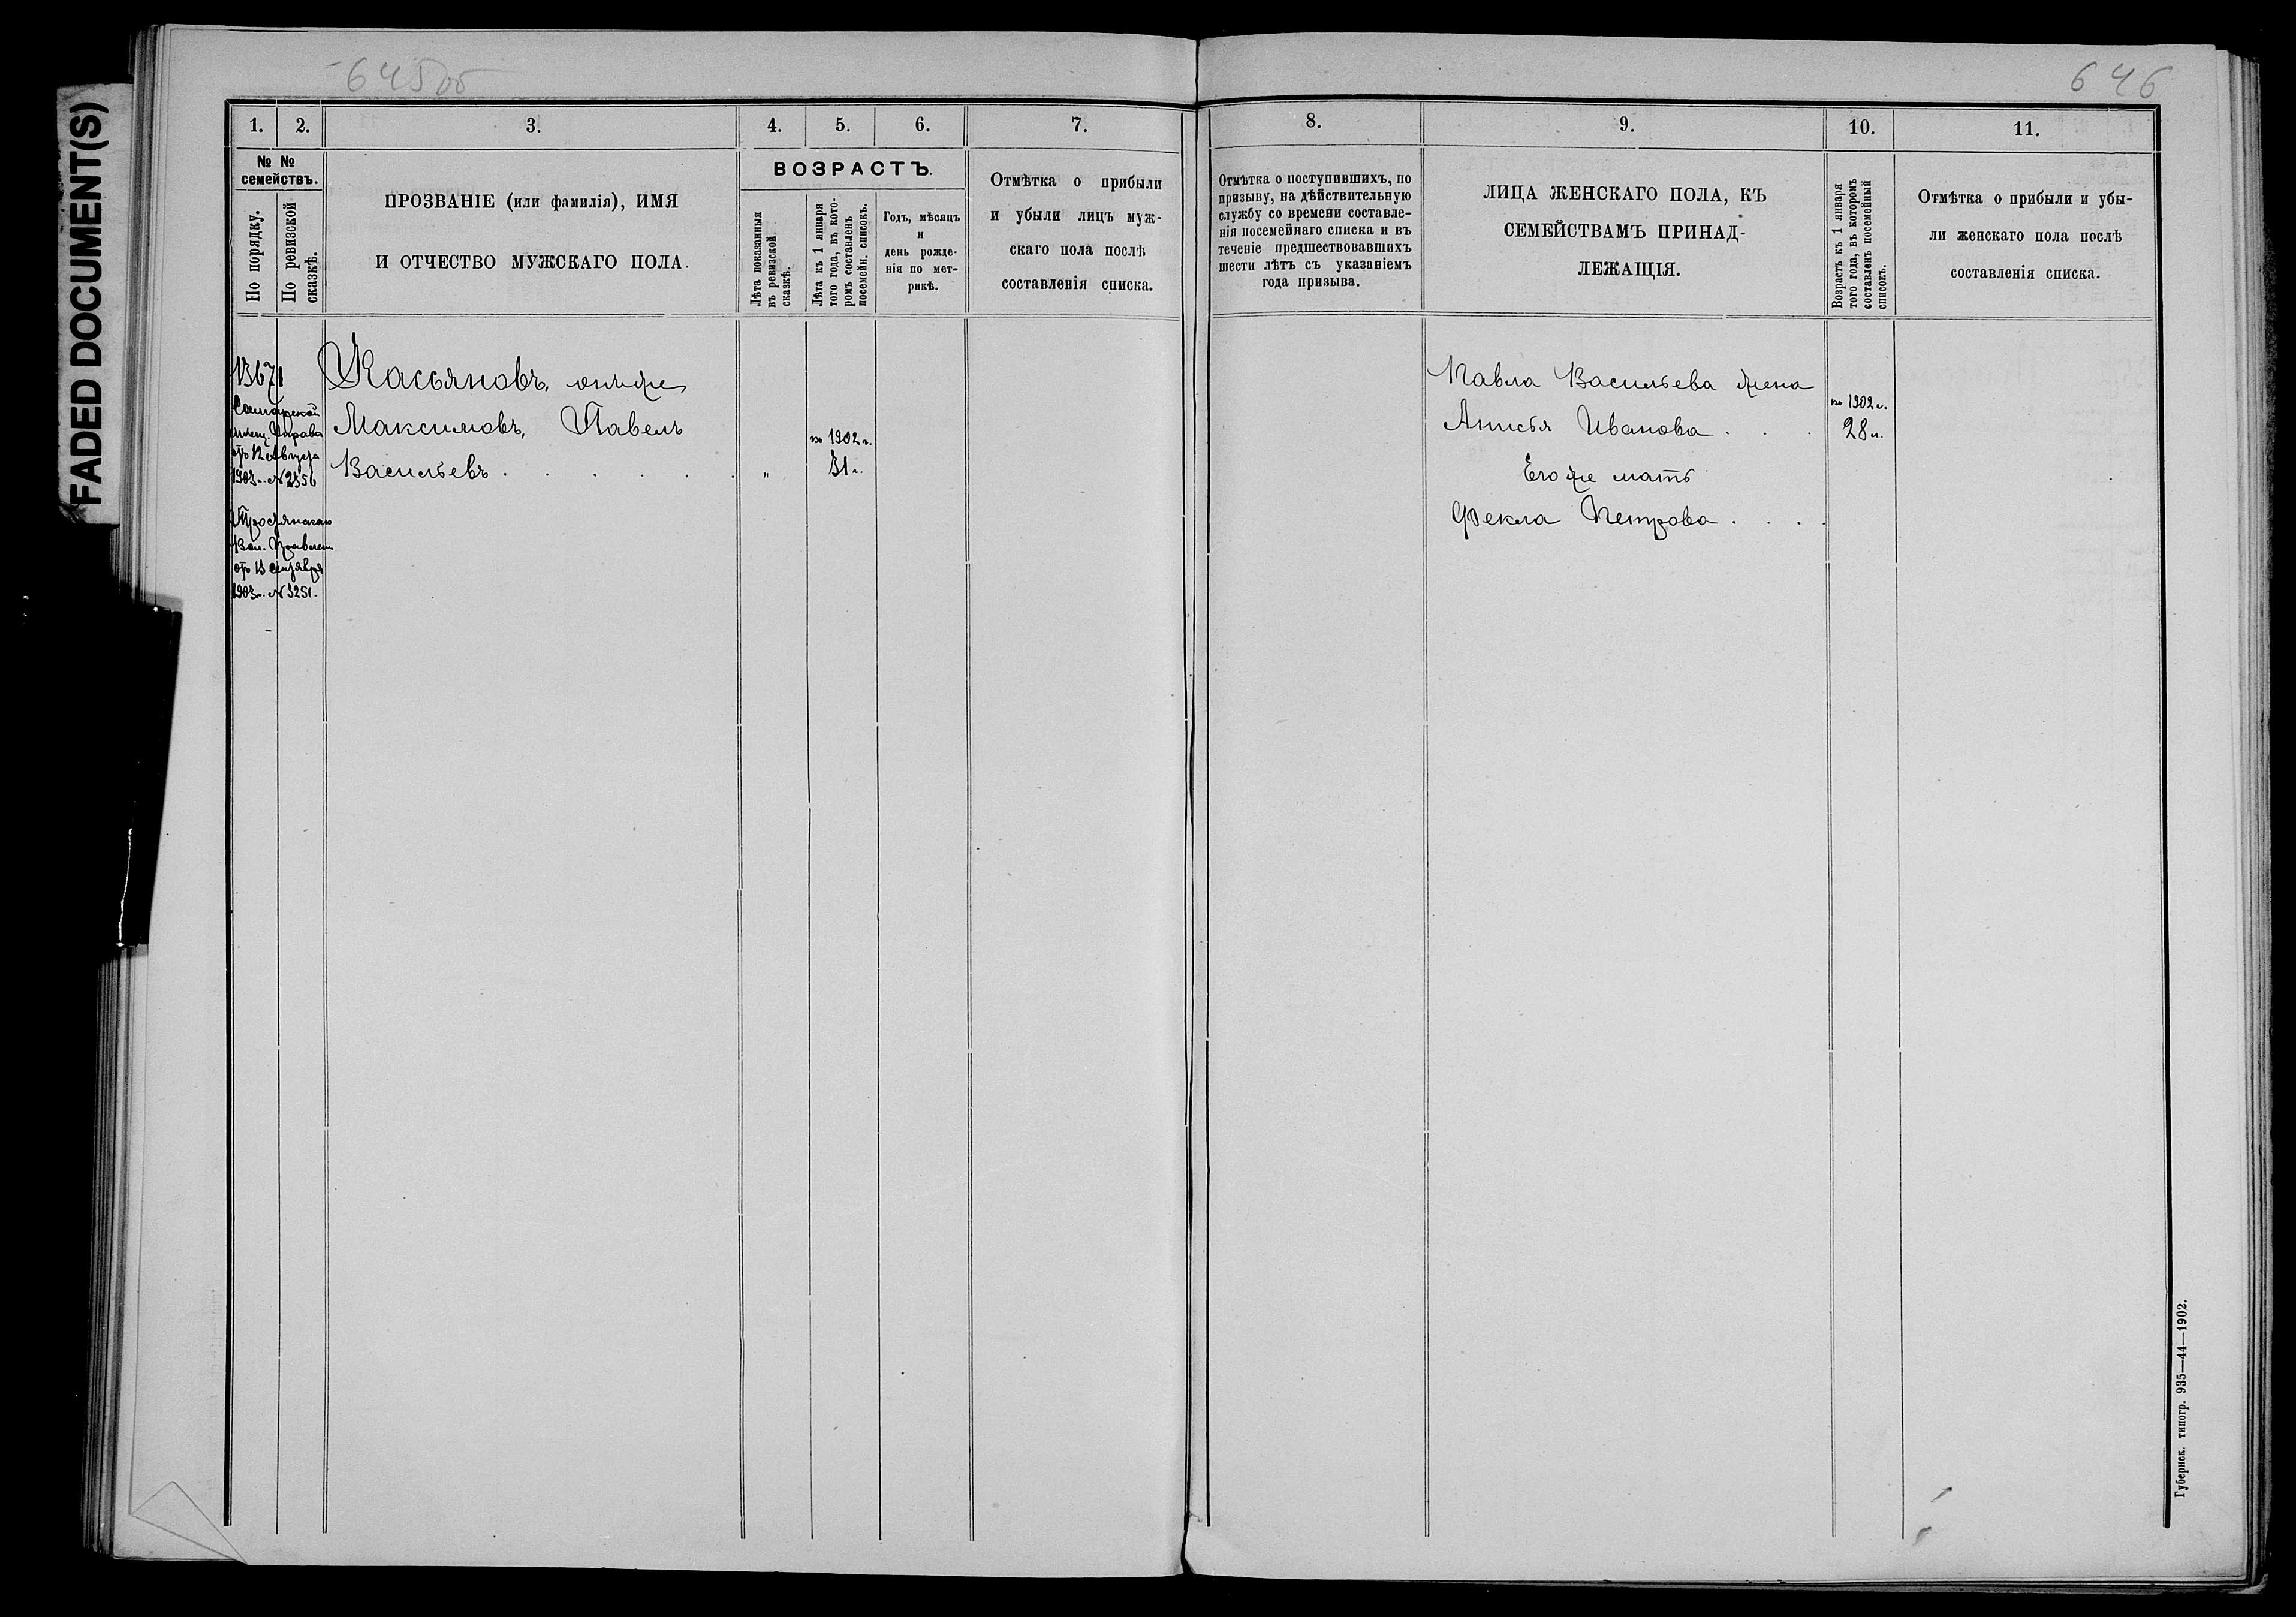 FADED DOCUMENT(S)
645об
646
1. 2. 3. 4. 5. 6. 7.
№ №
семействъ.
По порядку.
По ревизской
сказкѣ.
ПРОЗВАНІЕ (или фамилія), ИМЯ
И ОТЧЕСТВО МУЖСКАГО ПОЛА.
ВОЗРАСТЪ.
Лѣта показанныя
въ ревизской
сказкѣ.
Лѣта къ 1 января
того года, въ кото-
ромъ составленъ
посемейн. списокъ.
Годъ, мѣсяцъ
и
день рожде-
нія по мет-
рикѣ.
Отмѣтка о прибыли
и убыли лицъ муж-
скаго пола послѣ
составленія списка.
1367
Самарской
мѣщ. Управы
отъ 12 Августа
1903 г. № 2356
Вол. Правлен
отъ 13 сентября
1903 г. № 3251.
Касьяновъ, онъ же
Максимовъ, Павелъ
Васильевъ . . . . . .
"
къ 1902 г.
31 г.
8. 9. 10. 11.
Отмѣтка о поступившихъ, по
призыву, на дѣйствительную
службу со времени составле-
нія посемейнаго списка и въ
теченіе предшествовавшихъ
шести лѣтъ съ указаніемъ
года призыва.
ЛИЦА ЖЕНСКАГО ПОЛА, КЪ
СЕМЕЙСТВАМЪ ПРИНАД-
ЛЕЖАЩІЯ.
Возрастъ къ 1 января
того года, въ которомъ
составленъ посемейный
списокъ.
Отмѣтка о прибыли и убы-
ли женскаго пола послѣ
составленія списка.
Павла Васильева жена
Анисья Иванова . . .
Его же мать
Фекла Петрова . . . .
къ 1902 г.
28 л.
Губернск. типогр. 935—44—1902.